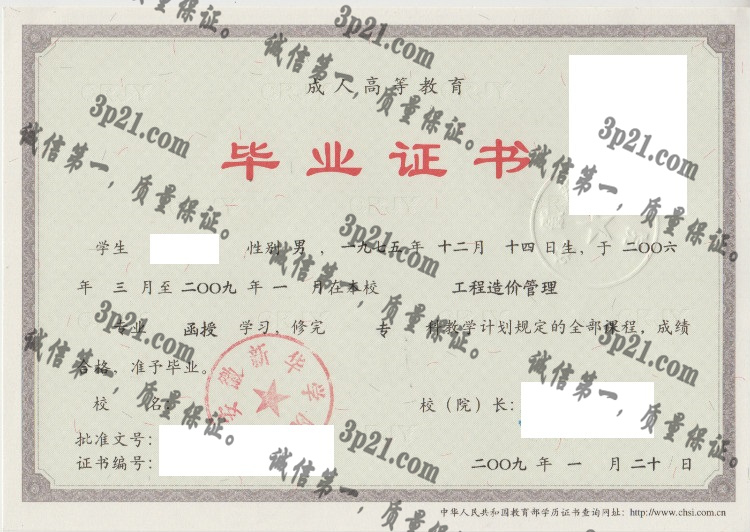 成人高等教育
毕业证书
学生 性别 男，一九七五年 十二月 十四日生，于 二〇〇六
年 三 月至 二〇〇九 年 一 月在本校 工程造价管理
专业 函授 学习，修完 专 科教学计划规定的全部课程，成绩
合格，准予毕业。
安徽新华学院
校 名： 校（院）长：
批准文号：
证书编号： 二〇〇九 年 一 月 二十 日
中华人民共和国教育部学历证书查询网址：http://www.chsi.com.cn
3p21.com
诚信第一，质量保证。
3p21.com
诚信第一，质量保证。
3p21.com
诚信第一，质量保证。
3p21.com
诚信第一，质量保证。
3p21.com
诚信第一，质量保证。
3p21.com
诚信第一，质量保证。
3p21.com
诚信第一，质量保证。
3p21.com
诚信第一，质量保证。
质量保证。